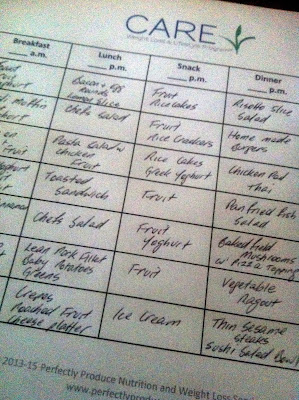 CARE
Weight Loss & Lifestyle Program
Breakfast
a.m.
Lunch
p.m.
Snack
p.m.
Dinner
p.m.
Fruit
Yoghurt
Bacon + egg
Lemon Slice
Fruit
Ricecakes
Risotto Slice
Salad
Muffin
Fruit
Chefs Salad
Fruit
Rice Crackers
Home made
Burgers
Pasta Salad w
Chicken
Fruit
Rice Cakes
Greek Yoghurt
Chicken Pad
Thai
Toasted
Sandwich
Fruit
Pan Fried Fish
Salad
Chefs Salad
Fruit
Yoghurt
Baked Field
Mushrooms
w Pizza Topping
Lean Pork Fillet
Baby Potatoes
Greens
Fruit
Vegetable
Ragout
Crepes
Poached Fruit
Cheese Platter
Ice Cream
Thin Sesame
Steaks
Sushi Salad Bowl
2013-15 Perfectly Produce Nutrition and Weight Loss
www.perfectlyprodu